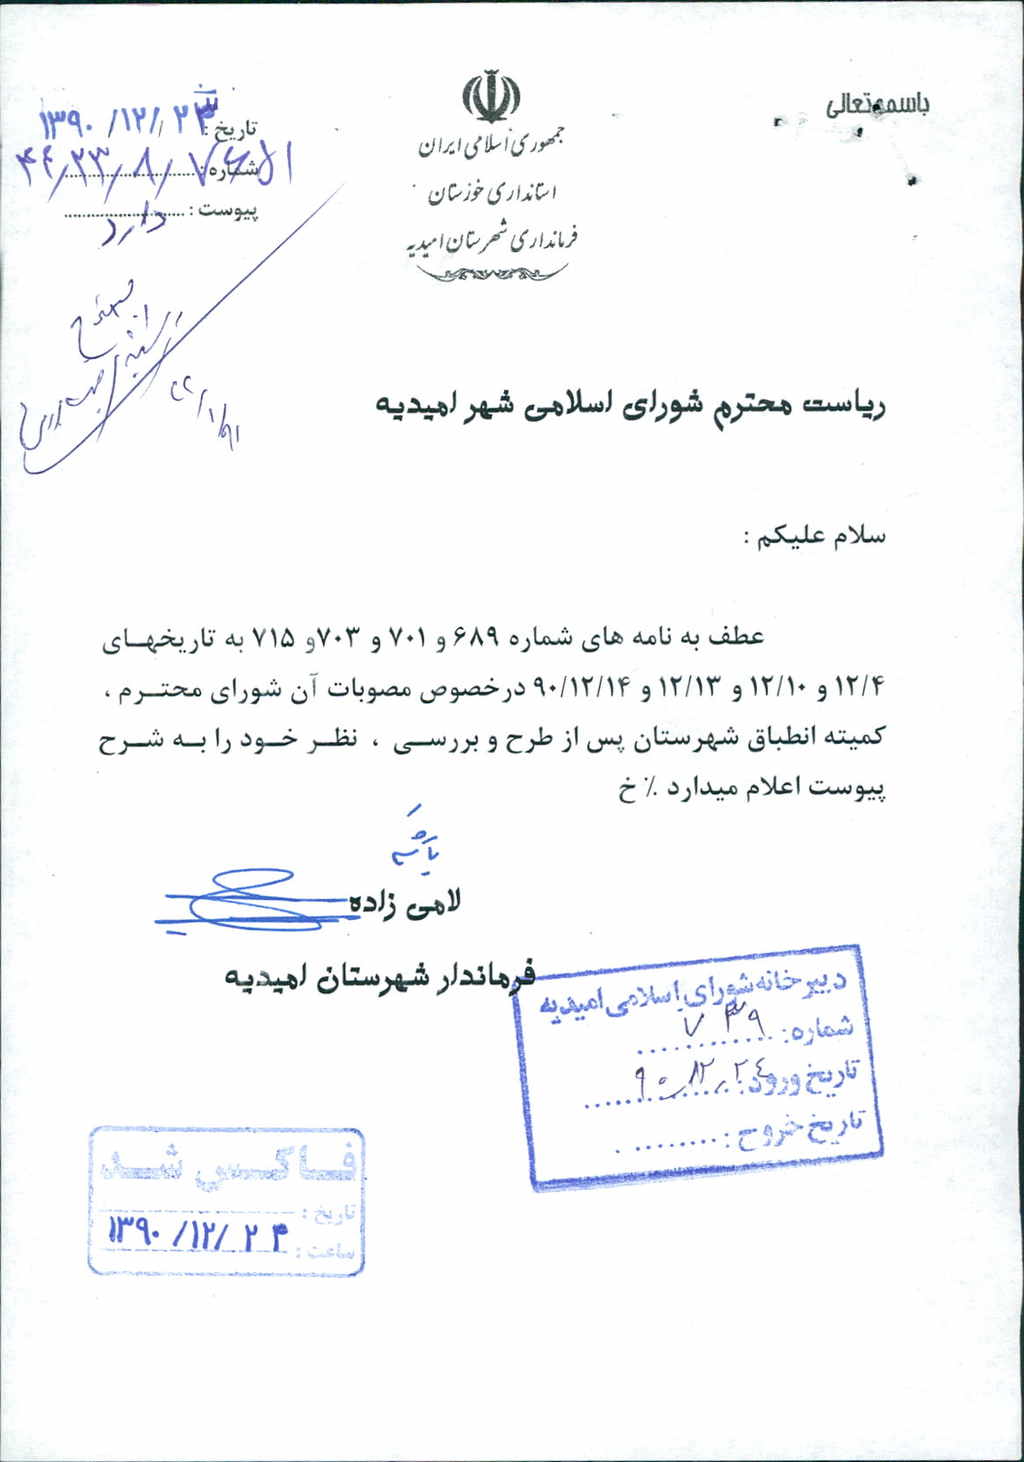 باسمه تعالی
جمهوری اسلامی ایران
استانداری خوزستان
فرمانداری شهرستان امیدیه
تاریخ : ۱۳۹۰/۱۲/۲۳
شماره :
پیوست : دارد
ریاست محترم شورای اسلامی شهر امیدیه
سلام علیکم :
عطف به نامه های شماره ۶۸۹ و ۷۰۱ و ۷۰۳و ۷۱۵ به تاریخهای
۱۲/۴ و ۱۲/۱۰ و ۱۲/۱۳ و ۹۰/۱۲/۱۴ درخصوص مصوبات آن شورای محترم ،
کمیته انطباق شهرستان پس از طرح و بررسی ، نظر خود را به شرح
پیوست اعلام میدارد ٪ خ
لامی زاده
فرماندار شهرستان امیدیه
دبیرخانه شورای اسلامی امیدیه
شماره: ۷۳۹
تاریخ ورود: ۹۰/۱۲/۲۴
تاریخ خروج :
فاکس شد
تاریخ :
۱۳۹۰/۱۲/۲۴
ساعت :